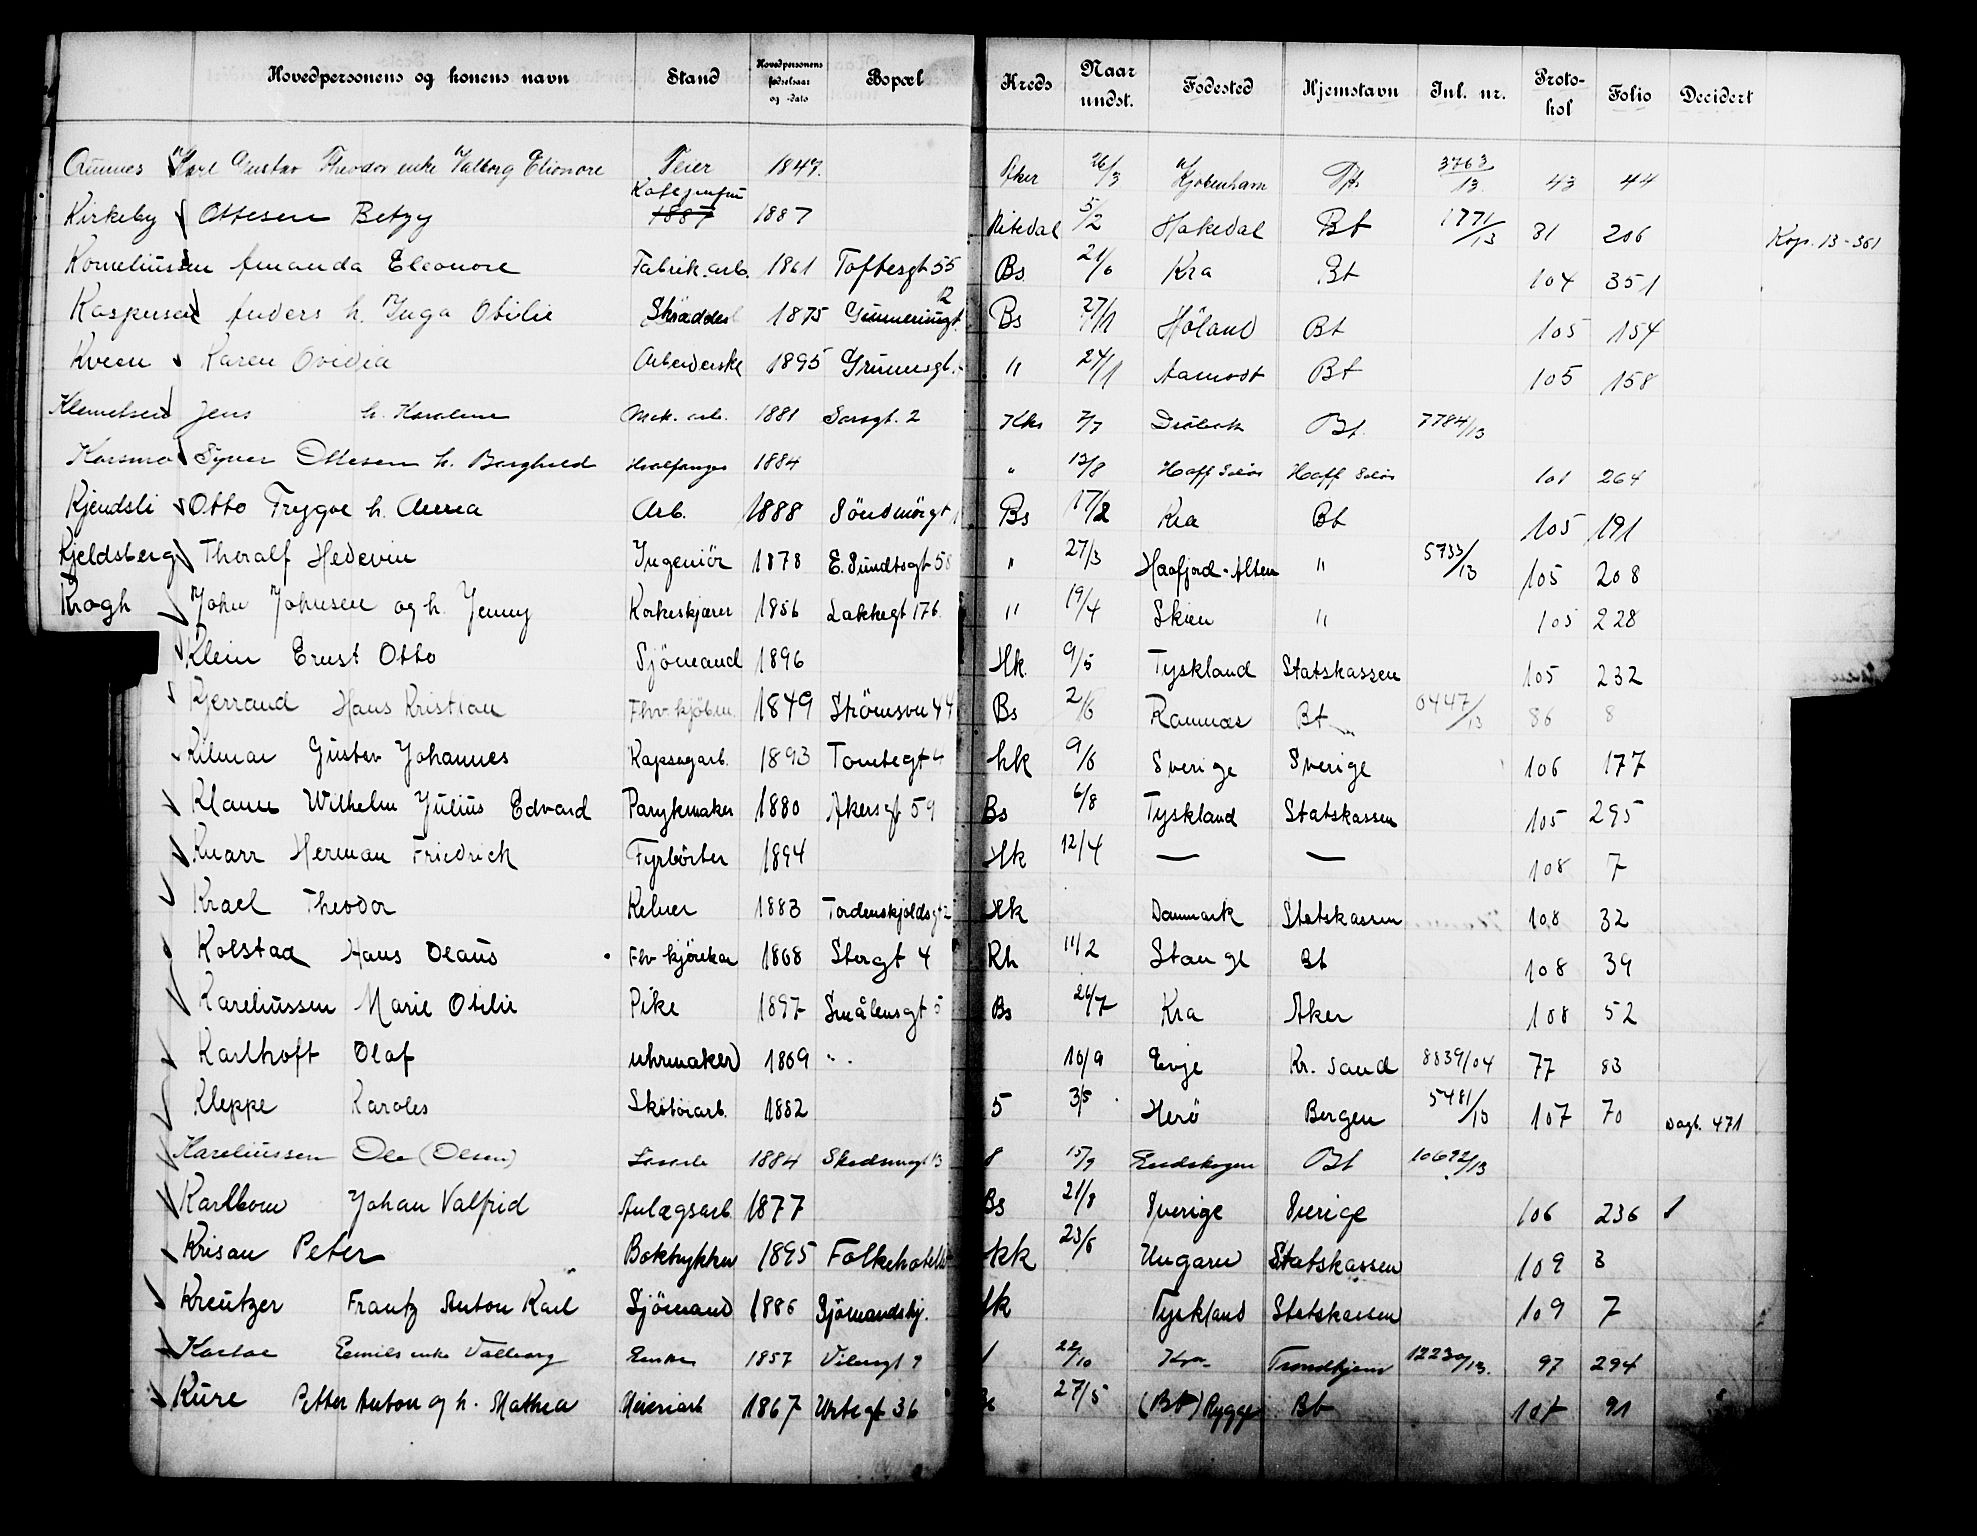 Hovedpersonens og konens navn | Stand | Hovedpersonens fødselsaar og -dato | Bopæl | Kreds | Naar undst. | Fødested | Hjemstavn | Inl. nr. | Protokol | Folio | Decidert
Karl Gustav Theodor enke Valborg Elionore | Feier | 1847. | Aker | 26/3 | Kjøbenham | | 3763/13 | 43 | 44
Kirkeby Ottesen Betzy | 1887 | 1887 | | Nitedal | 5/2 | Hakedal | Bt | 1771/13 | 31 | 206 | | Kop. 13-361
Korneliussen Amanda Eleonore | Fabrik.arb. | 1861 | Toftesgt 55 | Bs | 21/6 | Kra | Bt | | 104 | 351
Kaspersen Anders h. Inga Otilie | Skrædder | 1875 | | Bs | 27/11 | Høland | Bt | | 105 | 154
Kveen Karen Ovidia | Arbeiderske | 1895 | | " | 24/1 | Aamodt | Bt | | 105 | 158
Klemetsen Jens h. Karoline | Mek. arb. | 1881 | Sarsgt. 2 | Kks | 7/7 | Drøbak | Bt. | 7784/13
Korsmo Syver Ottesen h. Borghild | Hvalfanger | 1884 | | " | 13/8 | Hoff Solør | Hoff Solør | | 101 | 264
Kjendsli Otto Trygve h. Anna | Arb. | 1888 | Söndmörgt 1 | Bs | 17/2 | Kra | Bt | | 105 | 191
Kjeldsberg Thoralf Hedevin | Ingeniör | 1878 | E. Sundtsgt 58 | " | 27/3 | Haafjord-Alten | " | 5733/13 | 105 | 208
Krogh John Johnsen og h. Jenny | Korkeskjærer | 1856 | Lakkegt 17b. | " | 19/4 | Skien | " | | 105 | 228
Klein Ernst Otto | Sjömand | 1896 | | Hk. | 9/5 | Tyskland | Statskassen | | 105 | 232
Kjerrand Hans Kristian | Fhv. kjöbm. | 1849 | Strömsvn 44 | Bs | 2/6 | Ramnæs | Bt | 0447/13 | 86 | 8
Kilmar Gustav Johannes | Kapsagarb. | 1893 | Tomtegt 4 | hk | 9/6 | Sverige | Sverige | | 106 | 177
Klann Wilhelm Julius Edvard | Parykmaker | 1880 | Akersgt 59 | Bs | 6/8 | Tyskland | Statskassen | | 105 | 295
Knarr Herman Friedrich | Fyrböter | 1894 | | Hk | 12/4 | — | — | | 108 | 7
Krael Theodor | Kelner | 1883 | Tordenskjoldsgt 2 | Hk | | Danmark | Statskassen | | 108 | 32
Kolstad Hans Olaus | Fhv kjörekar | 1868 | Storgt 4 | Rh | 11/2 | Stange | Bt | | 108 | 39
Kareliussen Marie Otilie | Pike | 1897 | Smålensgt 5 | Bs | 26/7 | Kra | Aker | | 108 | 52
Karlhoft Olaf | uhrmaker | 1869 | " | | 10/9 | Evje | Kr. sand | 8839/04 | 77 | 83
Kleppe Karoles | Skotöiarb. | 1882 | | 5 | 3/5 | Herö | Bergen | 5481/13 | 107 | 70 | Dagb. 471
Kareliussen Ole (Olsen) | | 1884 | | 8 | 15/9 | Eidskogen | Bt | 10692/13
Karlbom Johan Valfrid | Anlægsarb. | 1877 | | Bs | 21/8 | Sverige | Sverige | | 106 | 236
Krisan Peter | Boktrykker | 1895 | Folkehotellet | kk | 23/6 | Ungarn | Statskassen | | 109 | 3
Kreutzer Frantz Anton Karl | Sjömand | 1886 | Sjömandshj. | Hk | | Tyskland | Statskassen | | 109 | 7
Emils enke Valborg | Enke | 1857 | | 1 | 22/10 | Kra | Trondhjem | 12230/13. | 97 | 294
Kure Petter Anton og h. Mathea | Meieriarb | 1867 | Urtegt 36 | Bs | 27/5 | (Bt) Rygge | Bt | | 107 | 91